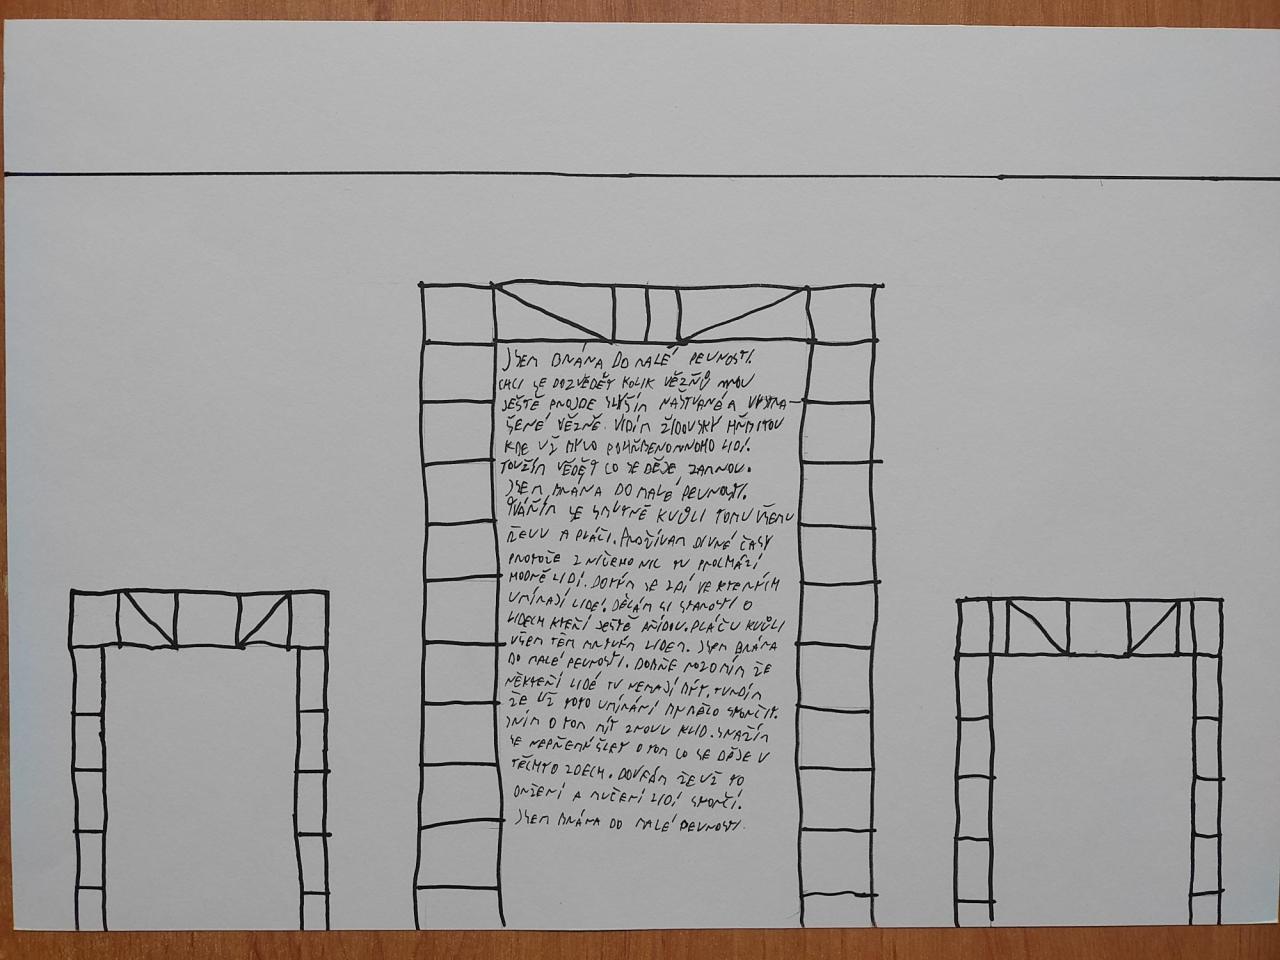 JSEM BRÁNA DO MALÉ PEVNOSTI.
CHCI SE DOZVĚDĚT KOLIK VĚZŇŮ MNOU
JEŠTĚ PROJDE SLYŠÍM NAŠTVANÉ A VYSTRA-
ŠENÉ VĚZNĚ. VIDÍM ŽIDOVSKÝ HŘBITOV
KDE UŽ BYLO POHŘBENO MNOHO LIDÍ.
TOUŽÍM VĚDĚT CO SE DĚJE ZAMNOU.
JSEM BRÁNA DO MALÉ PEVNOSTI.
TVÁŘÍM SE SMUTNĚ KVŮLI TOMU VŠEMU
ŘEVU A PLÁČI. PROŽÍVÁM DIVNÉ ČASY
PROTOŽE Z NIČEHO NIC TU PROCHÁZÍ
HODNĚ LIDÍ. DOTÝKÁM SE ZDÍ VE KTERÝCH
UMÍRAJÍ LIDÉ. DĚLÁM SI STAROSTI O
LIDECH KTEŘÍ JEŠTĚ PŘIJDOU. PLÁČU KVŮLI
VŠEM TĚM MRTVÝM LIDEM. JSEM BRÁNA
DO MALÉ PEVNOSTI. DOBŘE ROZUMÍM ŽE
NĚKTEŘÍ LIDÉ TU NEMAJÍ BÝT. TVRDÍM
ŽE UŽ TOTO UMÍRÁNÍ BY MĚLO SKONČIT.
SNÍM O TOM MÍT ZNOVU KLID. SNAŽÍM
SE NEPŘEMÝŠLET O TOM CO SE DĚJE V
TĚCHTO ZDECH. DOUFÁM ŽE UŽ TO
DRŽENÍ A MUČENÍ LIDÍ SKONČÍ.
JSEM BRÁNA DO MALÉ PEVNOSTI.